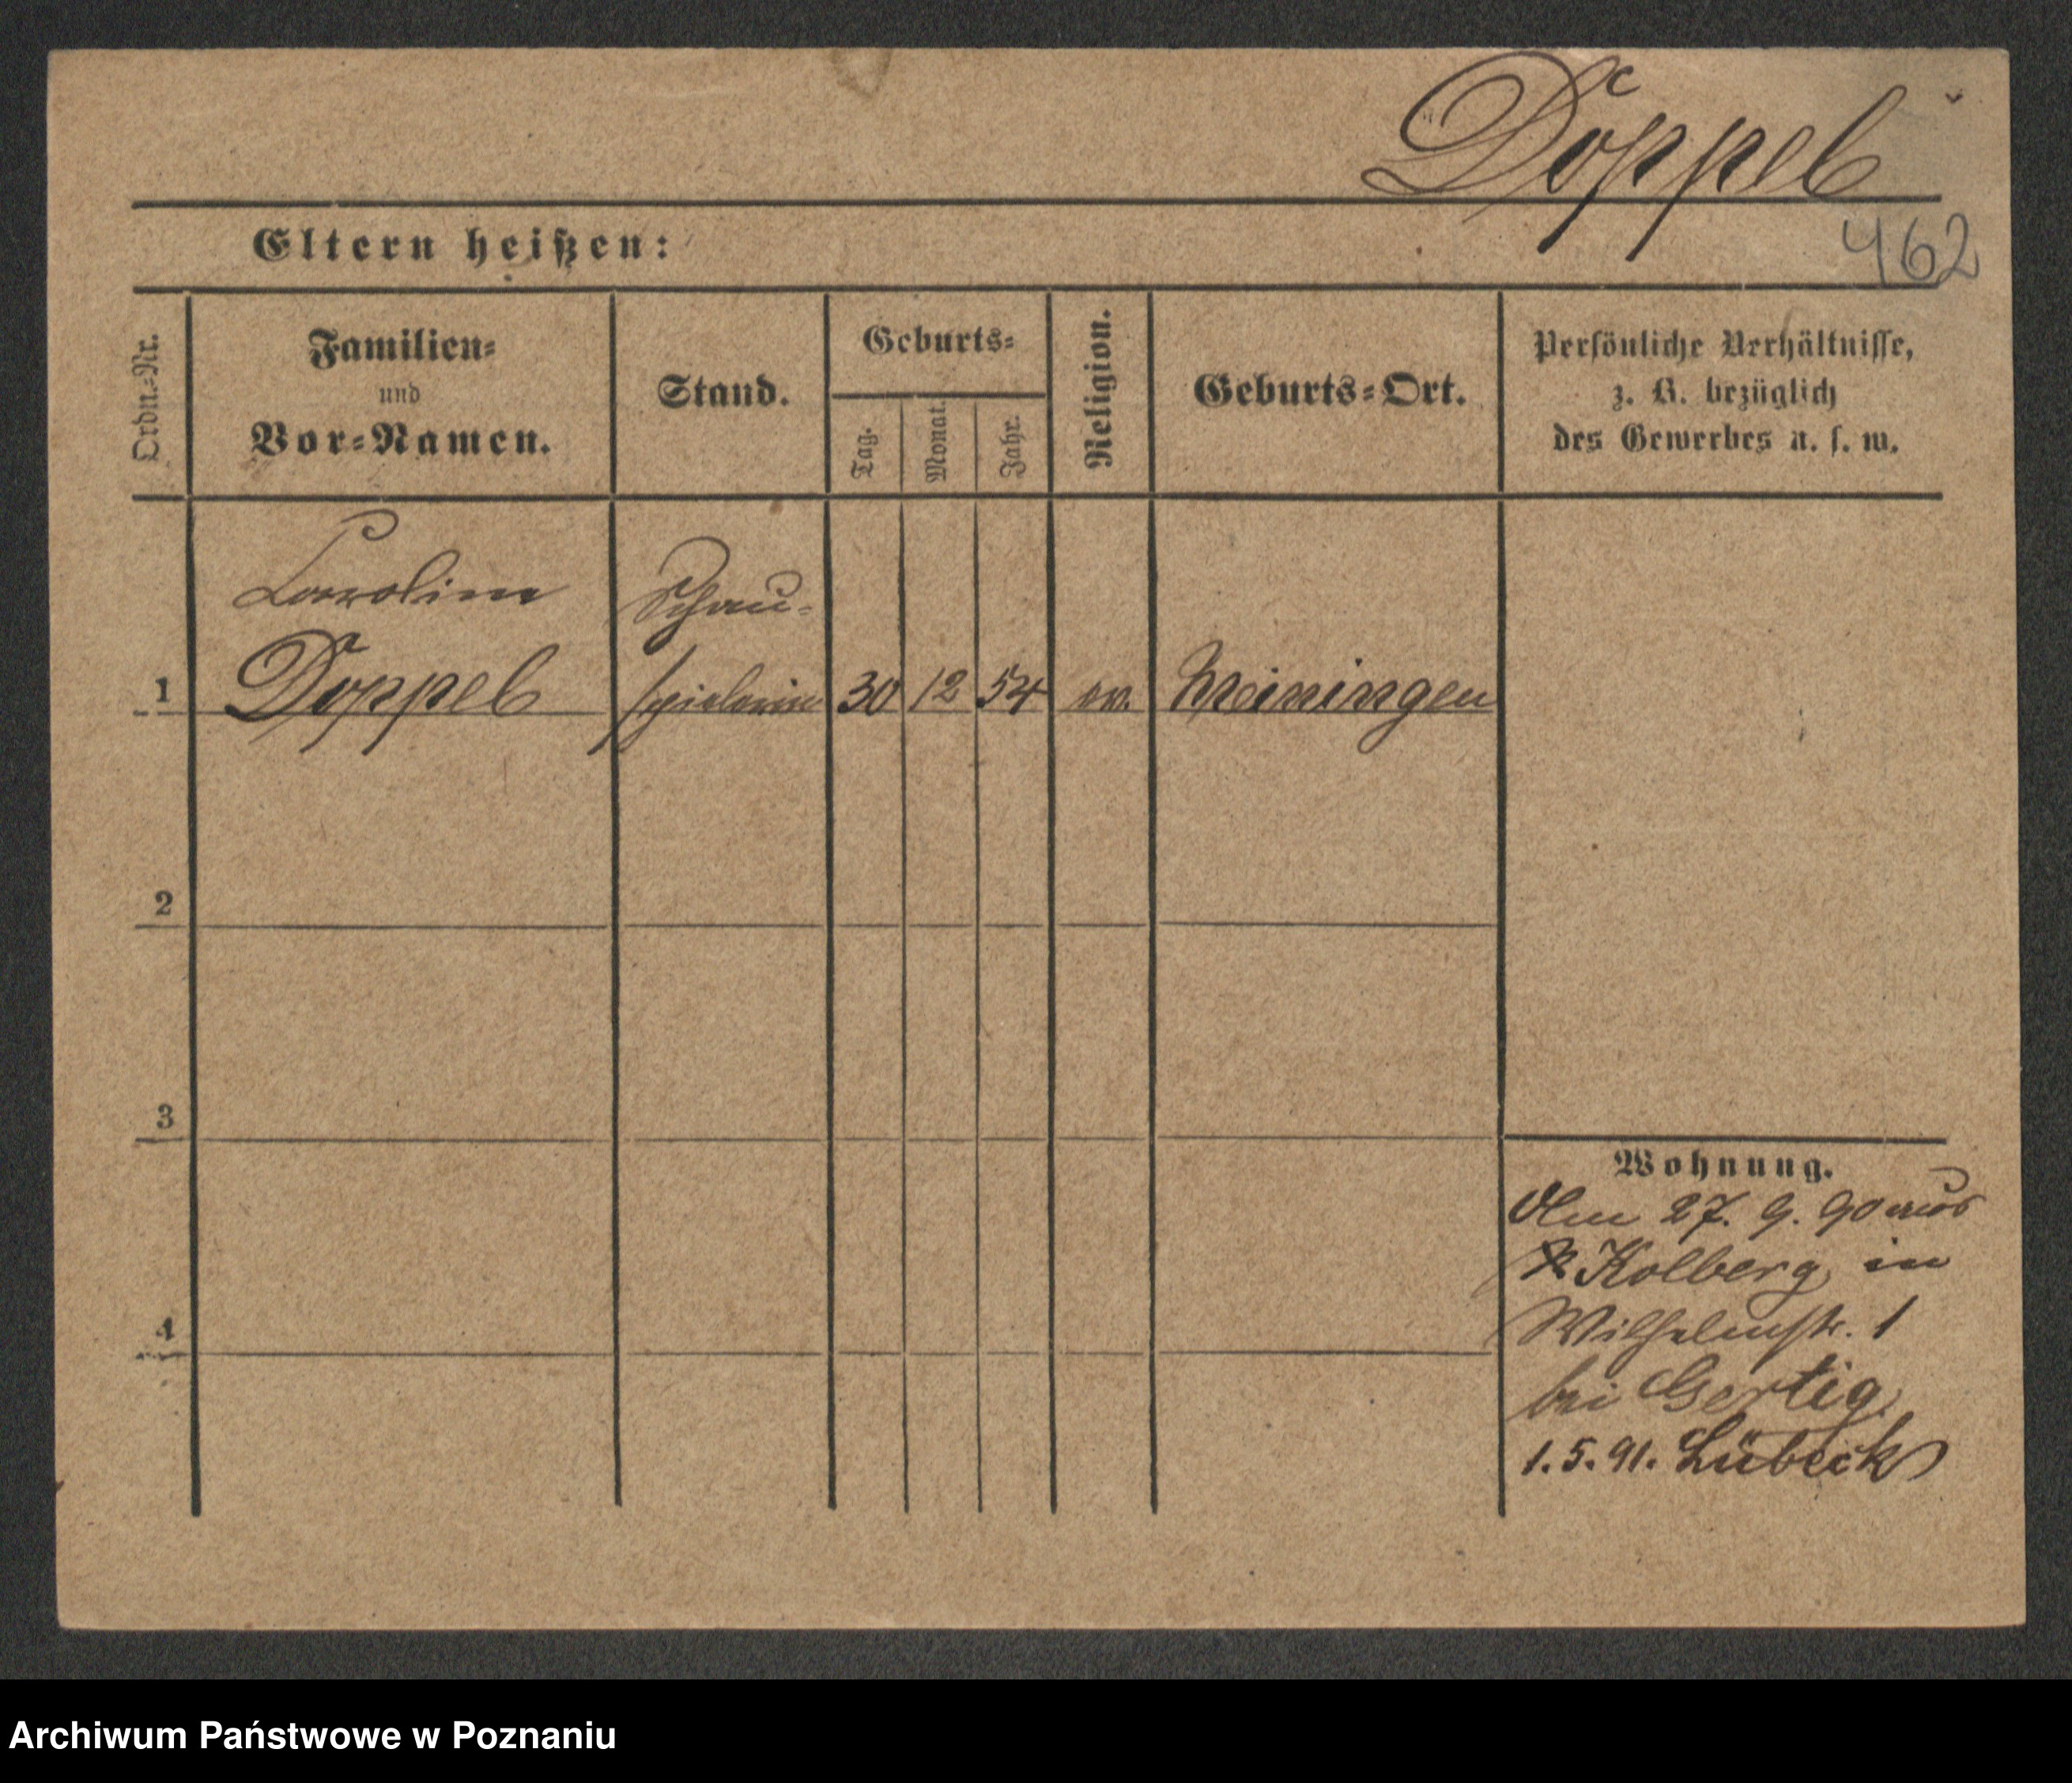 Doppel
462
Eltern heißen:
Ordn.-Nr.
Familien-
und
Vor-Namen.
Stand.
Geburts-
Tag.
Monat.
Jahr.
Religion.
Geburts-Ort.
Persönliche Verhältnisse,
z. B. bezüglich
des Gewerbes u. s. w.
Caroline Schau-
1 Doppel spielerin 30 12 54 ev. Meiningen
2
3
4
Wohnung.
Am 27. 9. 90 aus
Kolberg in
Wilhelmstr. 1
bei Gertig
1. 5. 91. Lübeck
Archiwum Państwowe w Poznaniu